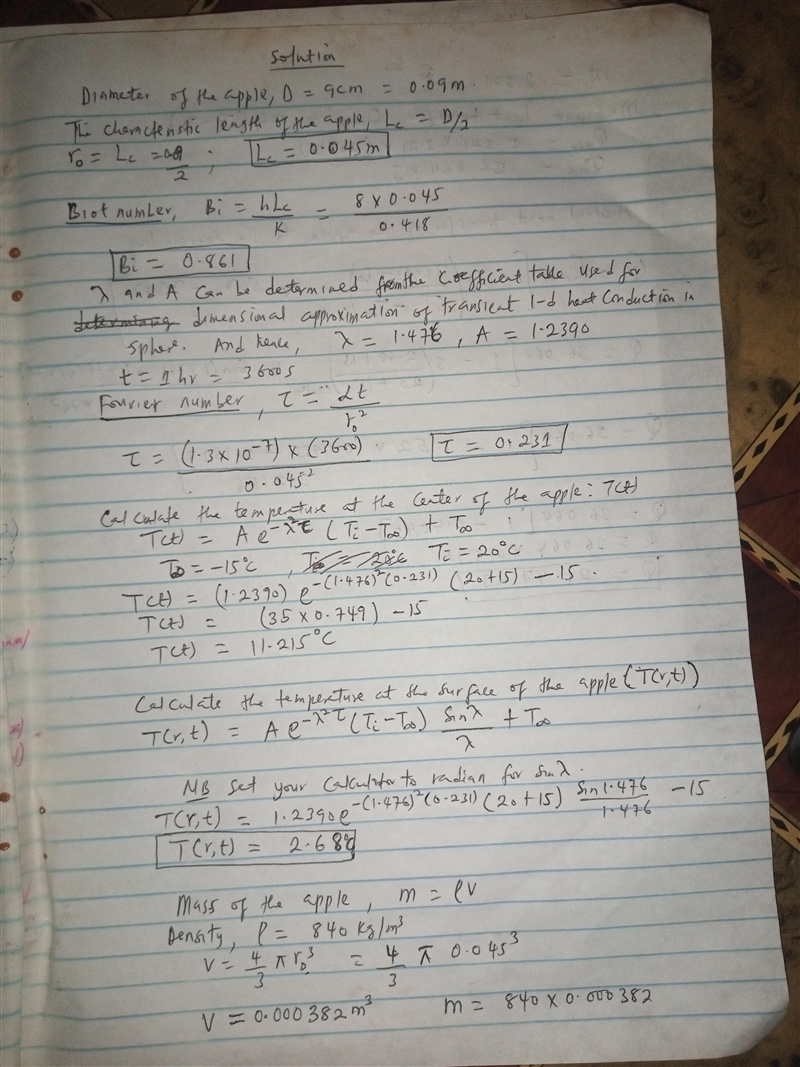 Solution
Diameter of the apple, D = 9cm = 0.09m.
The characteristic length of the apple, Lc = D/2
r₀ = Lc = 0.09/2 ; Lc = 0.045m
Biot number, Bi = hLc/K = 8 x 0.045/0.418
Bi = 0.861
λ and A can be determined from the coefficient table used for
dimensional approximation of transient 1-d heat conduction in
sphere. And hence, λ = 1.476, A = 1.2390
t = 1 hr = 3600s
Fourier number, τ = αt/r₀²
τ = (1.3 x 10⁻⁷) x (3600)/0.045² τ = 0.231
Calculate the temperature at the center of the apple: T(t)
T(t) = A e^-λ²τ (Ti - T∞) + T∞
T∞ = -15°C, Ti = 20°C
T(t) = (1.2390) e^-(1.476)²(0.231) (20+15) - 15.
T(t) = (35 x 0.749) - 15
T(t) = 11.215°C
Calculate the temperature at the surface of the apple (T(r,t))
T(r,t) = A e^-λ²τ (Ti - T∞) sinλ/λ + T∞
NB set your calculator to radian for sinλ.
T(r,t) = 1.2390e^-(1.476)²(0.231) (20+15) sin1.476/1.476 - 15
T(r,t) = 2.68°C
Mass of the apple, m = ρv
Density, ρ = 840 kg/m³
V = 4/3 π r₀³ = 4/3 π 0.045³
V = 0.000382m³ m = 840 x 0.000382